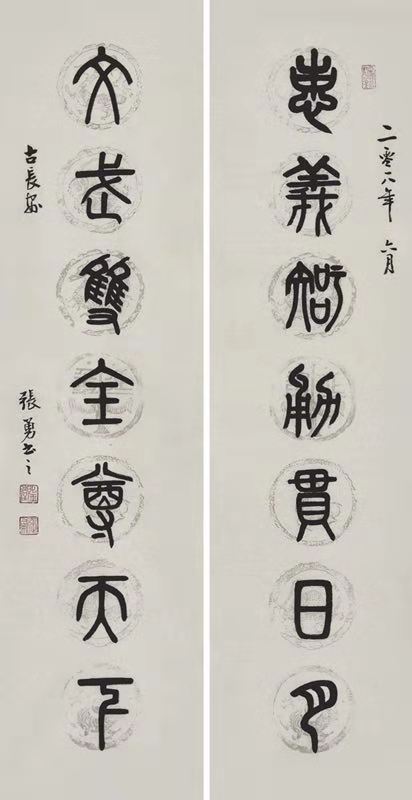 二零八年 六月
忠義智勇貫日月
文武雙全尊天下
古長安 張勇書之